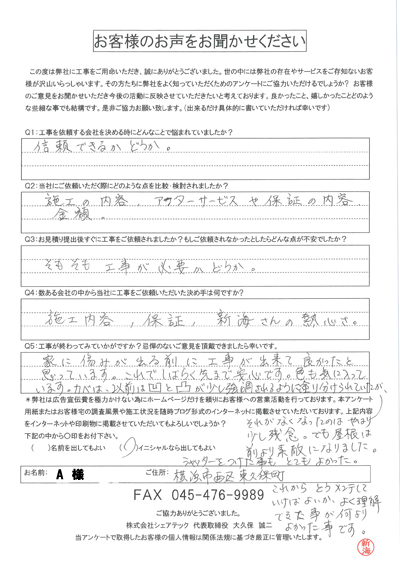 お客様のお声をお聞かせください
この度は弊社に工事をご用命いただき、誠にありがとうございました。世の中には弊社の存在やサービスをご存知ないお客
様が沢山いらっしゃいます。その方たちに弊社をよく知っていただくためのアンケートにご協力いただけるでしょうか？ お客様
のご意見をお聞かせいただき今後の活動に反映させていただきたいと考えております。良かったこと、嬉しかったことどのよう
な些細な事でも結構です。是非ご協力お願い致します。（出来るだけ具体的に書いていただければ幸いです）
Q1：工事を依頼する会社を決める時にどんなことで悩まれていましたか？
信頼できるかどうか。
Q2：当社にご依頼いただく際にどのような点を比較・検討されましたか？
施工の内容、アフターサービスや保証の内容、
金額。
Q3：お見積り提出後すぐに工事をご依頼されましたか？もしご依頼されなかったとしたらどんな点が不安でしたか？
そもそも工事が必要かどうか。
Q4：数ある会社の中から当社に工事をご依頼いただいた決め手は何ですか？
施工内容、保証、新海さんの熱心さ。
Q5：工事が終わってみていかがですか？忌憚のないご意見を頂戴できましたら幸いです。
家に傷みが出る前に工事が出来て良かったと
思っています。これでしばらく先まで安心です。色も気に入って
います。カベは、以前は凹と凸が少し強調されるように塗り分けられていたが、
それがなくなったのはやはり
少し残念。でも屋根は
前より素敵になりました。
シャッターをつけた事もとてもよかった。
これからどうメンテして
いけばよいか、よく理解
できた事が何より
よかった事です。
※弊社は広告宣伝費を極力かけない為にホームページだけを頼りにお客様への営業活動を行っております。本アンケート
用紙またはお客様宅の調査風景や施工状況を随時ブログ形式のインターネットに掲載させていただいております。上記内容
をインターネットや印刷物に掲載させていただいてもよろしいでしょうか？
下記の中から〇印をお付け下さい。
（　）名前を出してもよい　（〇）イニシャルなら出してもよい
お名前： A 様　ご住所： 横浜市西区東久保町
FAX 045-476-9989
ご協力ありがとうございました。
株式会社シェアテック 代表取締役 大久保 誠二
当アンケートで取得したお客様の個人情報は関係法規に基づき厳正に管理いたします。
新海